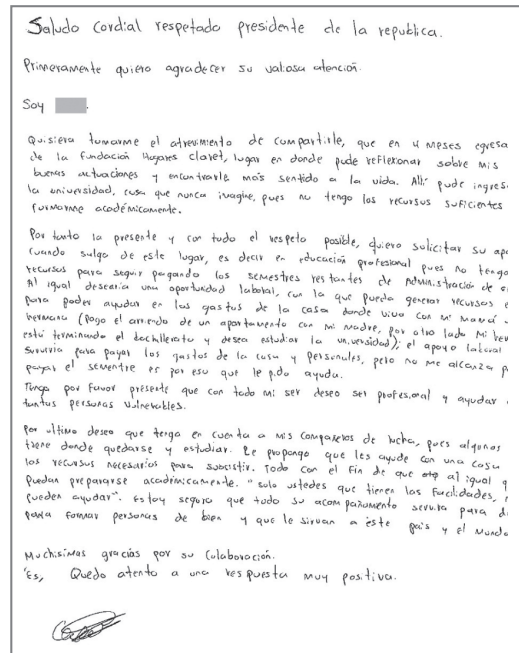 Saludo Cordial respetado presidente de la republica.
Primeramente quiero agradecer su valiosa atención.
Soy
Quisiera tomarme el atrevimiento de compartirle, que en 4 meses egresa
de la Fundación Hogares Claret, lugar en donde pude reflexionar sobre mis
buenas actuaciones y encontrarle más sentido a la vida. Allí pude ingres
la universidad, cosa que nunca imagine, pues no tengo los recursos suficientes
formarme académicamente.
Por tanto la presente y con todo el respeto posible, quiero solicitar su apo
cuando salga de este lugar, es decir en educación profesional pues no tengo
recursos para seguir pagando los semestres restantes de Administración de
Al igual desearía una oportunidad laboral, con la que pueda generar recursos
para poder ayudar en los gastos de la casa donde vivo con mi mamá
hermana (Pago el arriendo de un apartamento con mi madre, por otro lado mi her
está terminando el bachillerato y desea estudiar la universidad); el apoyo laboral
serviría para pagar los gastos de la casa y personales, pero no me alcanza p
pagar el semestre es por eso que le pido ayuda.
Tenga por favor presente que con todo mi ser deseo ser profesional y ayudar
tantas personas vulnerables.
Por ultimo deseo que tenga en cuenta a mis compañeros de lucha, pues algunos
tiene donde quedarse y estudiar. Le propongo que les ayude con una casa
los recursos necesarios para subsistir. Todo con el fin de que al igual q
puedan prepararse académicamente. "solo ustedes que tienen las facilidades,
pueden ayudar". Estoy seguro que todo su acompañamento servira para d
para formar personas de bien y que le sirvan a este pais y el mundo
Muchisimas gracias por su colaboración.
Es, Quedo atento a una respuesta muy positiva.